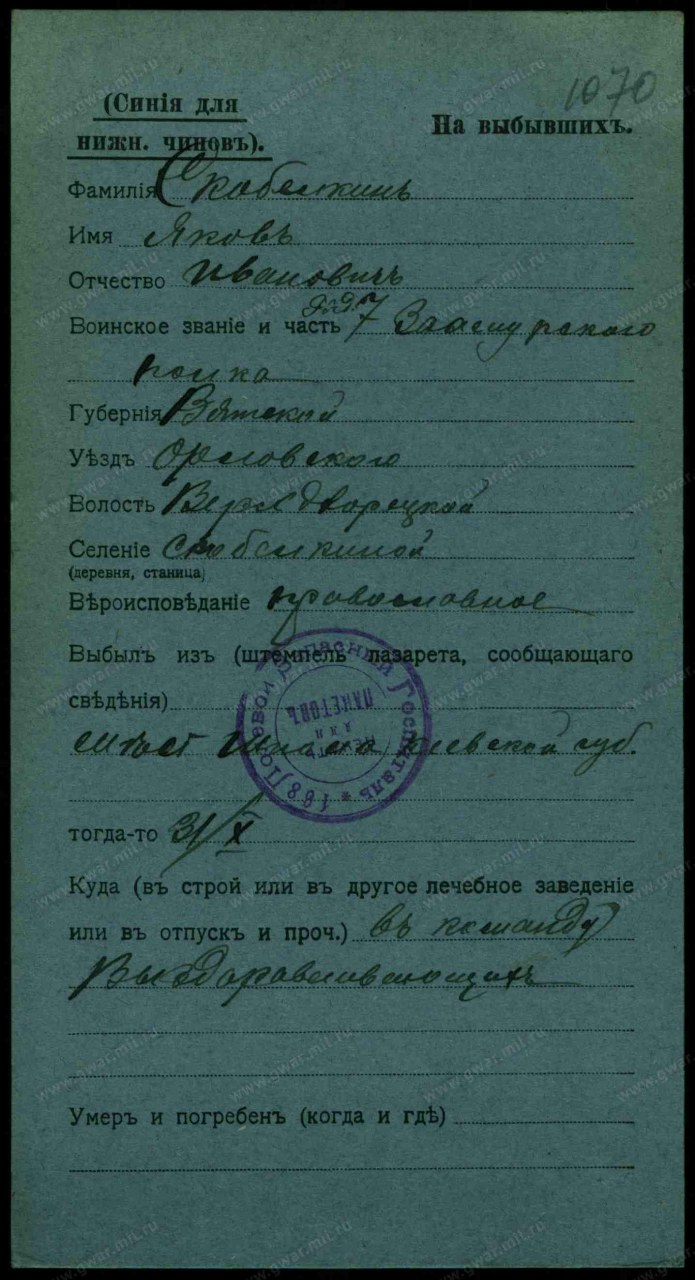 1070
(Синія для
нижн. чиновъ).
На выбывшихъ.
Фамилія Скобелкинъ
Имя Яковъ
Отчество Ивановичъ
Воинское званіе и часть 7 Заамурского
полка
Губернія Вятской
Уѣздъ Орловского
Волость Верходворецкой
Селеніе Скобелкиной
(деревня, станица)
Вѣроисповѣданіе православное
Выбылъ изъ (штемпель лазарета, сообщающаго
свѣдѣнія)
Шпола Кіевской губ.
168 Полевой Запасный Госпиталь
для
пакетовъ
тогда-то 31/X
Куда (въ строй или въ другое лечебное заведеніе
или въ отпускъ и проч.) въ команду
Выздоравливающихъ
Умеръ и погребенъ (когда и гдѣ)
www.gwar.mil.ru